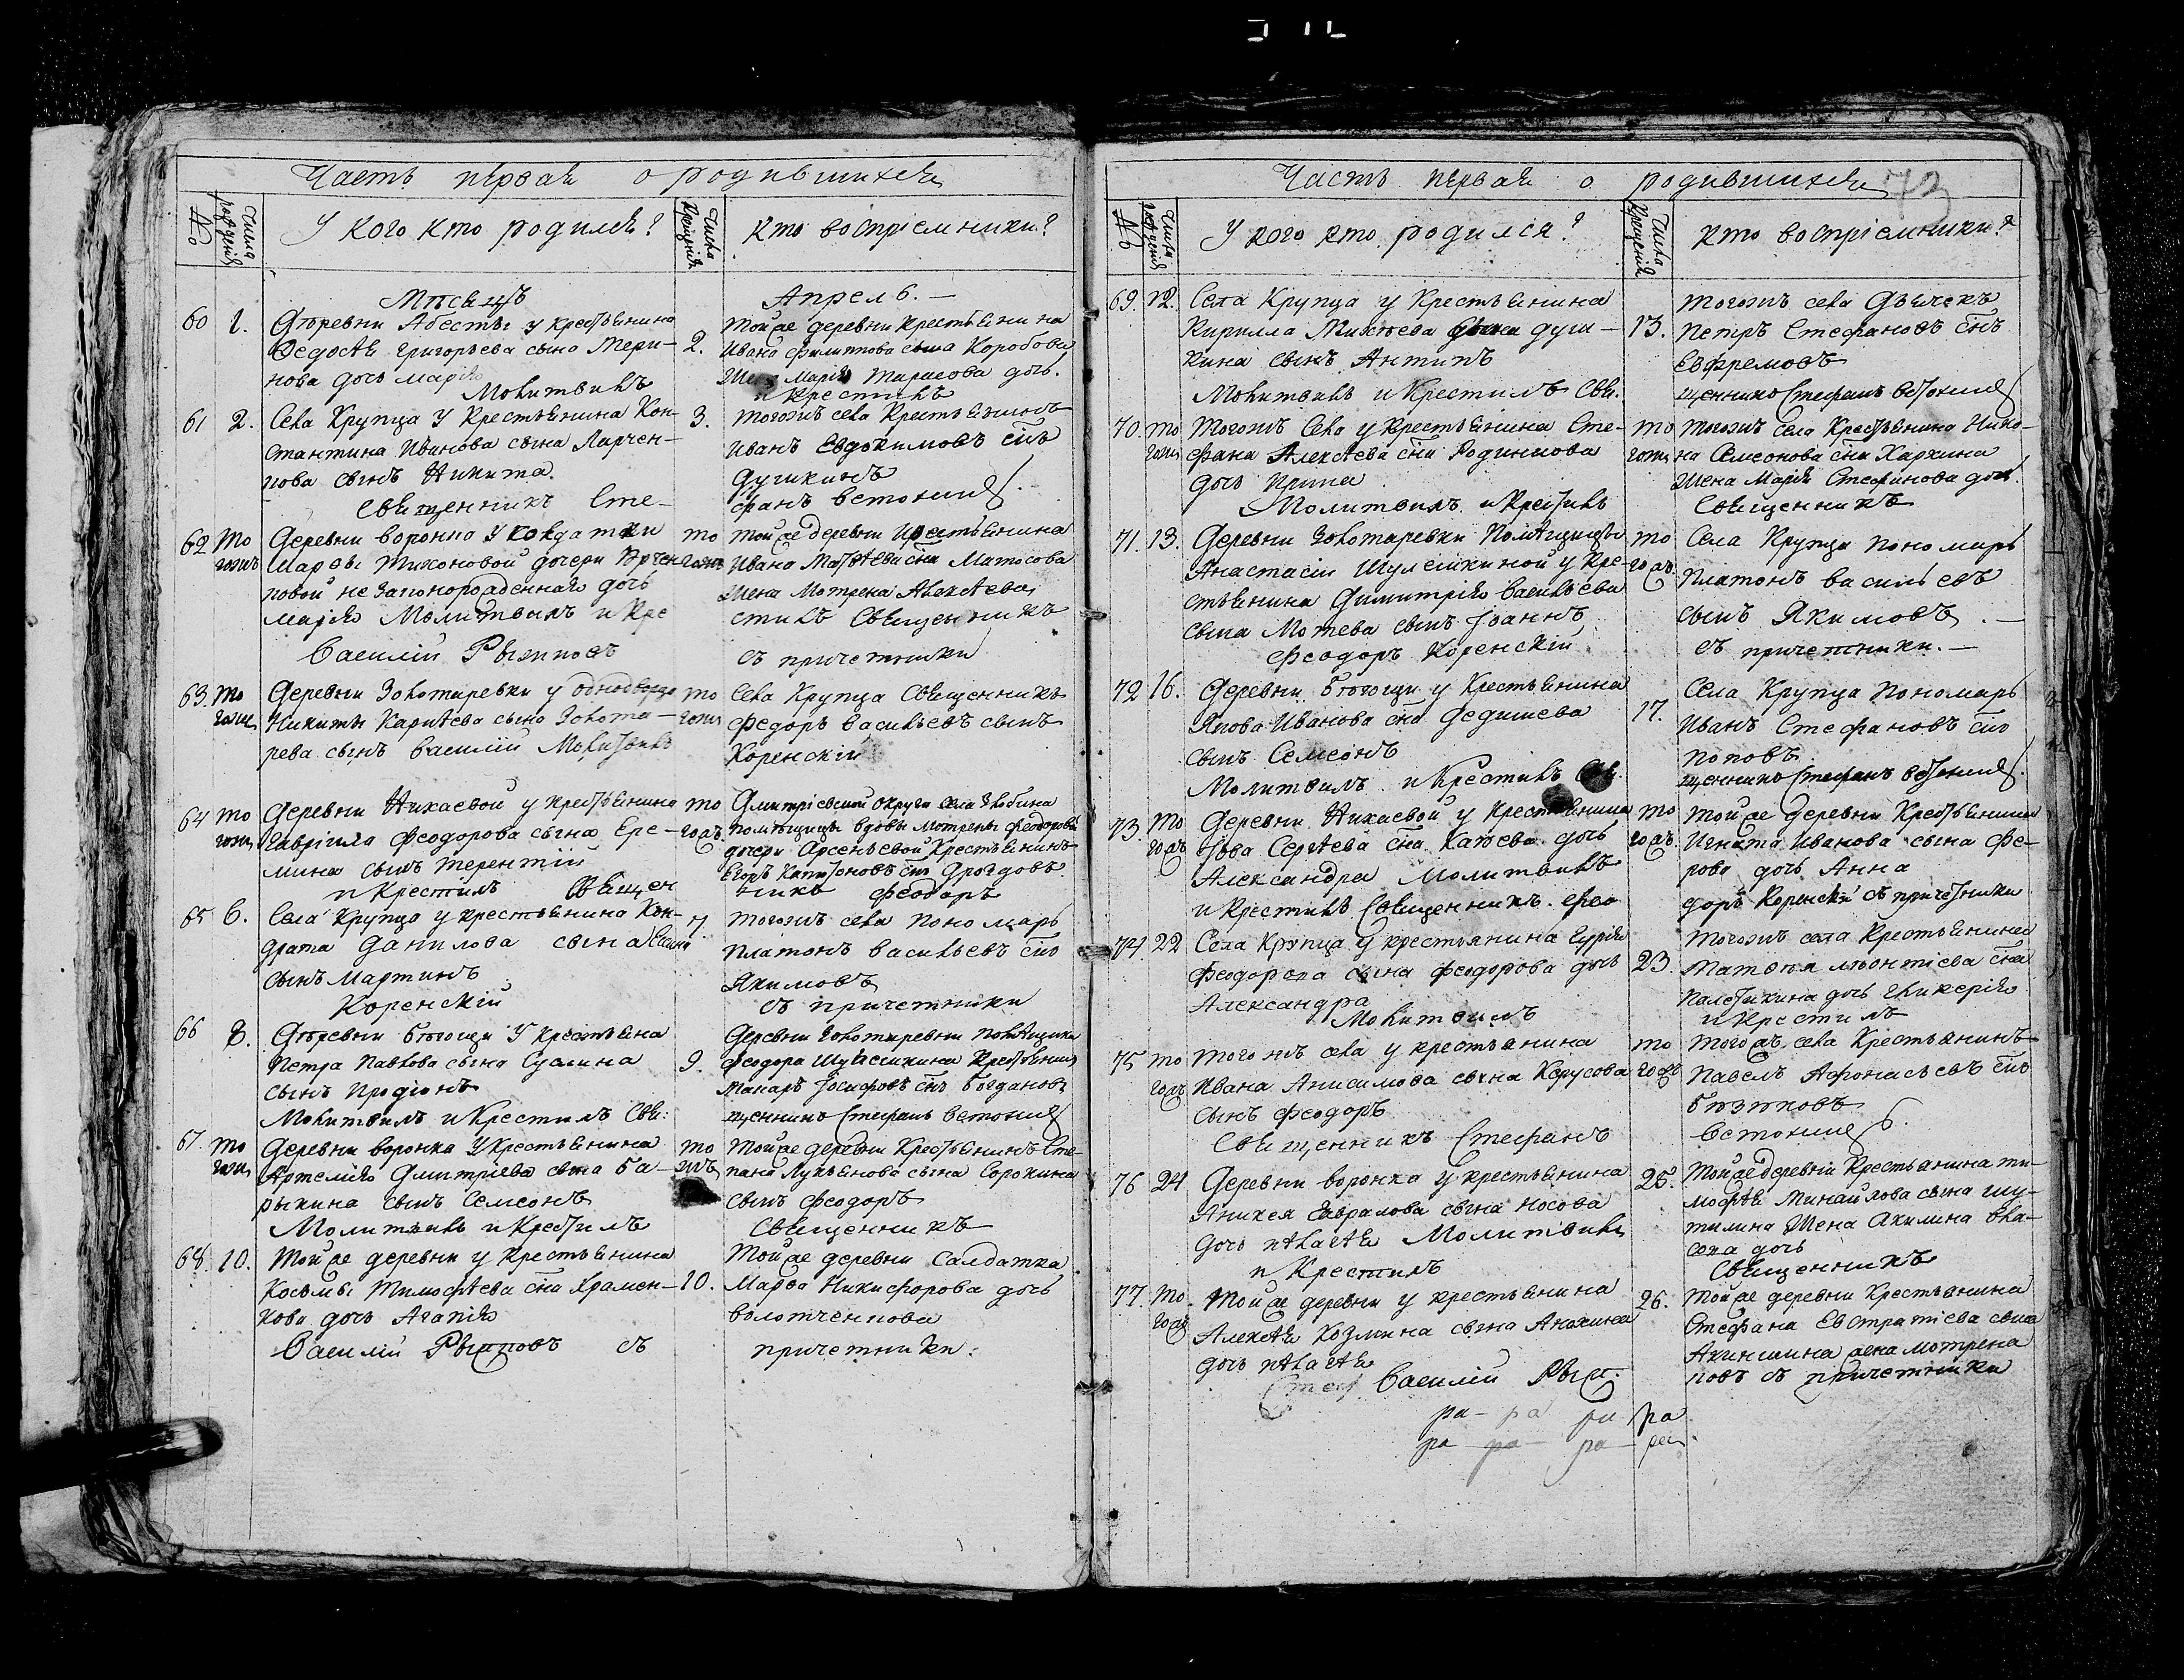 Часть первая о родившихся
№
Числа рождения
У кого кто родился?
Числа крещения
Кто воспріемники?
Мѣсяцъ Апрель.
60 1. Деревни Абесты у крестьянина
Федосѣя Григорьева сына Мери-
нова дочь Марія
Молитвилъ
2. Той же деревни крестьянина
Ивана Филиппова сына Коробова
Жена Марія Тарасова дочь.
и Крестилъ
61 2. Села Крупца у Крестьянина Кон-
стантина Иванова сына Ларчен-
кова сынъ Никита.
Священникъ Сте-
3. тогожъ села Крестьянинъ
Иванъ Евдокимовъ снъ
Душкинъ
фанъ
62 то гожъ Деревни Воронка у солдатки
Марѳы Тихоновой дочери
новой незаконорожденная дочь
Марія Молитвилъ и Кре
Василій Рыжковъ
то гожъ той же деревни Крестьянина
Ивана Матвѣева сна Матосова
Жена Мотрена Алексѣева
стилъ Священникъ
съ причетники
63. то гожъ Деревни Золотаревки у однодворца
Никиты Карпѣева сына Золота-
рева сынъ Василій Молитвилъ
то гожъ Села Крупца Священникъ
Федоръ Васильевъ сынъ
Коренскій
64 то гожъ Деревни Никаевой у крестьянина
Гавріила Феодорова сына Ере-
мина сынъ Терентій
и Крестилъ Священ
то гожъ Дмитріевской округи села
помѣщицы вдовы Мотрены Феодоровой
дочери Арсеньевой Крестьянинъ
Егоръ Капитоновъ снъ Дроздовъ
никъ Феодоръ
65 6. Села Крупца у крестьянина Кон-
драта Данилова сына
сынъ Мартинъ
Коренскій
7 тогожъ села Пономарь
Платонъ Васильевъ снъ
Якимовъ
съ причетники
66 8. Деревни у Крестьяна
Петра Павлова сына
сынъ Иродіонъ
Молитвилъ и Крестилъ Свя:
9. Деревни Золотаревки помѣщика
Феодора Шулешкина Крестьянинъ
Макаръ Іосифовъ снъ Богдановъ
щенникъ Стефанъ
67. то гожъ Деревни Воронка у Крестьянина
Артемія Дмитріева сына Ба-
рыкина сынъ Семеонъ
Молитвилъ и Крестилъ
то жъ Той же деревни Крестьянинъ Сте-
пана Лукьянова сына Сорокина
сынъ Феодоръ
Священникъ
68. 10. Той же деревни у Крестьянина
Косьмы Тимофѣева сна Храмен-
кова дочь Агапія
Василій Рыжковъ съ
10. Той же деревни Салдатка
Марѳа Никифорова дочь
Волотченкова
причетники.
Часть первая о родившихся 73
№
Числа рождения
У кого кто родился?
Числа крещения
Кто воспріемники?
69. 12. Села Крупца у Крестьянина
Кирилла Михѣева сына Душ-
кина сынъ Антипъ
Молитвилъ и Крестилъ Свя.
13. тогожъ села Дьячекъ
Петръ Стефановъ снъ
Евфремовъ
щенникъ Стефанъ
70. то гожъ Тогожъ Села у крестьянина Сте-
фана Алексѣева сна Родионова
дочь Ирина
Молитвилъ и Крестилъ
то гожъ тогожъ села Крестьянина Нико-
на Семеонова сна Харкина
Жена Марія Стефанова дочь.
Священникъ
71. 13. Деревни Золотаревки Помѣщицы
Анастасіи Шулешкиной у Кре-
стьянина Димитрія Васильева
сына Мотева сынъ Іоаннъ
Феодоръ Коренскій.
то гожъ Села Крупца пономарь
Платонъ Васильевъ
сынъ Якимовъ
съ причетники.
72 16. Деревни у Крестьянина
Якова Иванова сна Федишева
сынъ Семеонъ
Молитвилъ и Крестилъ Свя
17. Села Крупца Пономарь
Иванъ Стефановъ снъ
Поповъ
щенникъ Стефанъ
73. то гожъ Деревни Никаевой у Крестьянина
Іова Сергѣева сна Катева дочь
Александра Молитвилъ
и Крестилъ Священникъ. Фео
то гожъ той же деревни Крестьянина
Игната Иванова сына Фе-
рова дочь Анна
доръ Коренскій съ причетники
74. 22 Села Крупца у крестьянина Гурія
Феодорова сына Феодорова дочь
Александра
Молитвилъ
23. тогожъ села Крестьянина
Леонтіева сна
дочь Гликерія
и Крестилъ
75 то гожъ Того жъ села у крестьянина
Ивана Анисимова сына Корусова
сынъ Феодоръ
Священникъ Стефанъ
то гожъ того жъ села Крестьянинъ
Павелъ Афонасьевъ снъ
76 24 Деревни Воронка у крестьянина
Аникея Гаврилова сына Носова
дочь Пѣлагѣя Молитвилъ
и Крестилъ
25. Той же деревни Крестьянина Ти-
мофѣя Михайлова сына Шу-
тилина Жена Акилина Вла-
сова дочь
Священникъ
77. то гожъ Той же деревни у крестьянина
Алексѣя Козмина сына Анахина
дочь Пѣлагѣя
Стеф Василій Рыж.
26. Той же деревни Крестьянина
Стефана Евстратіева сына
Акиншина жена Мотрена
ковъ съ причетники
ра- ра ра ра
ра ра- ра- ра